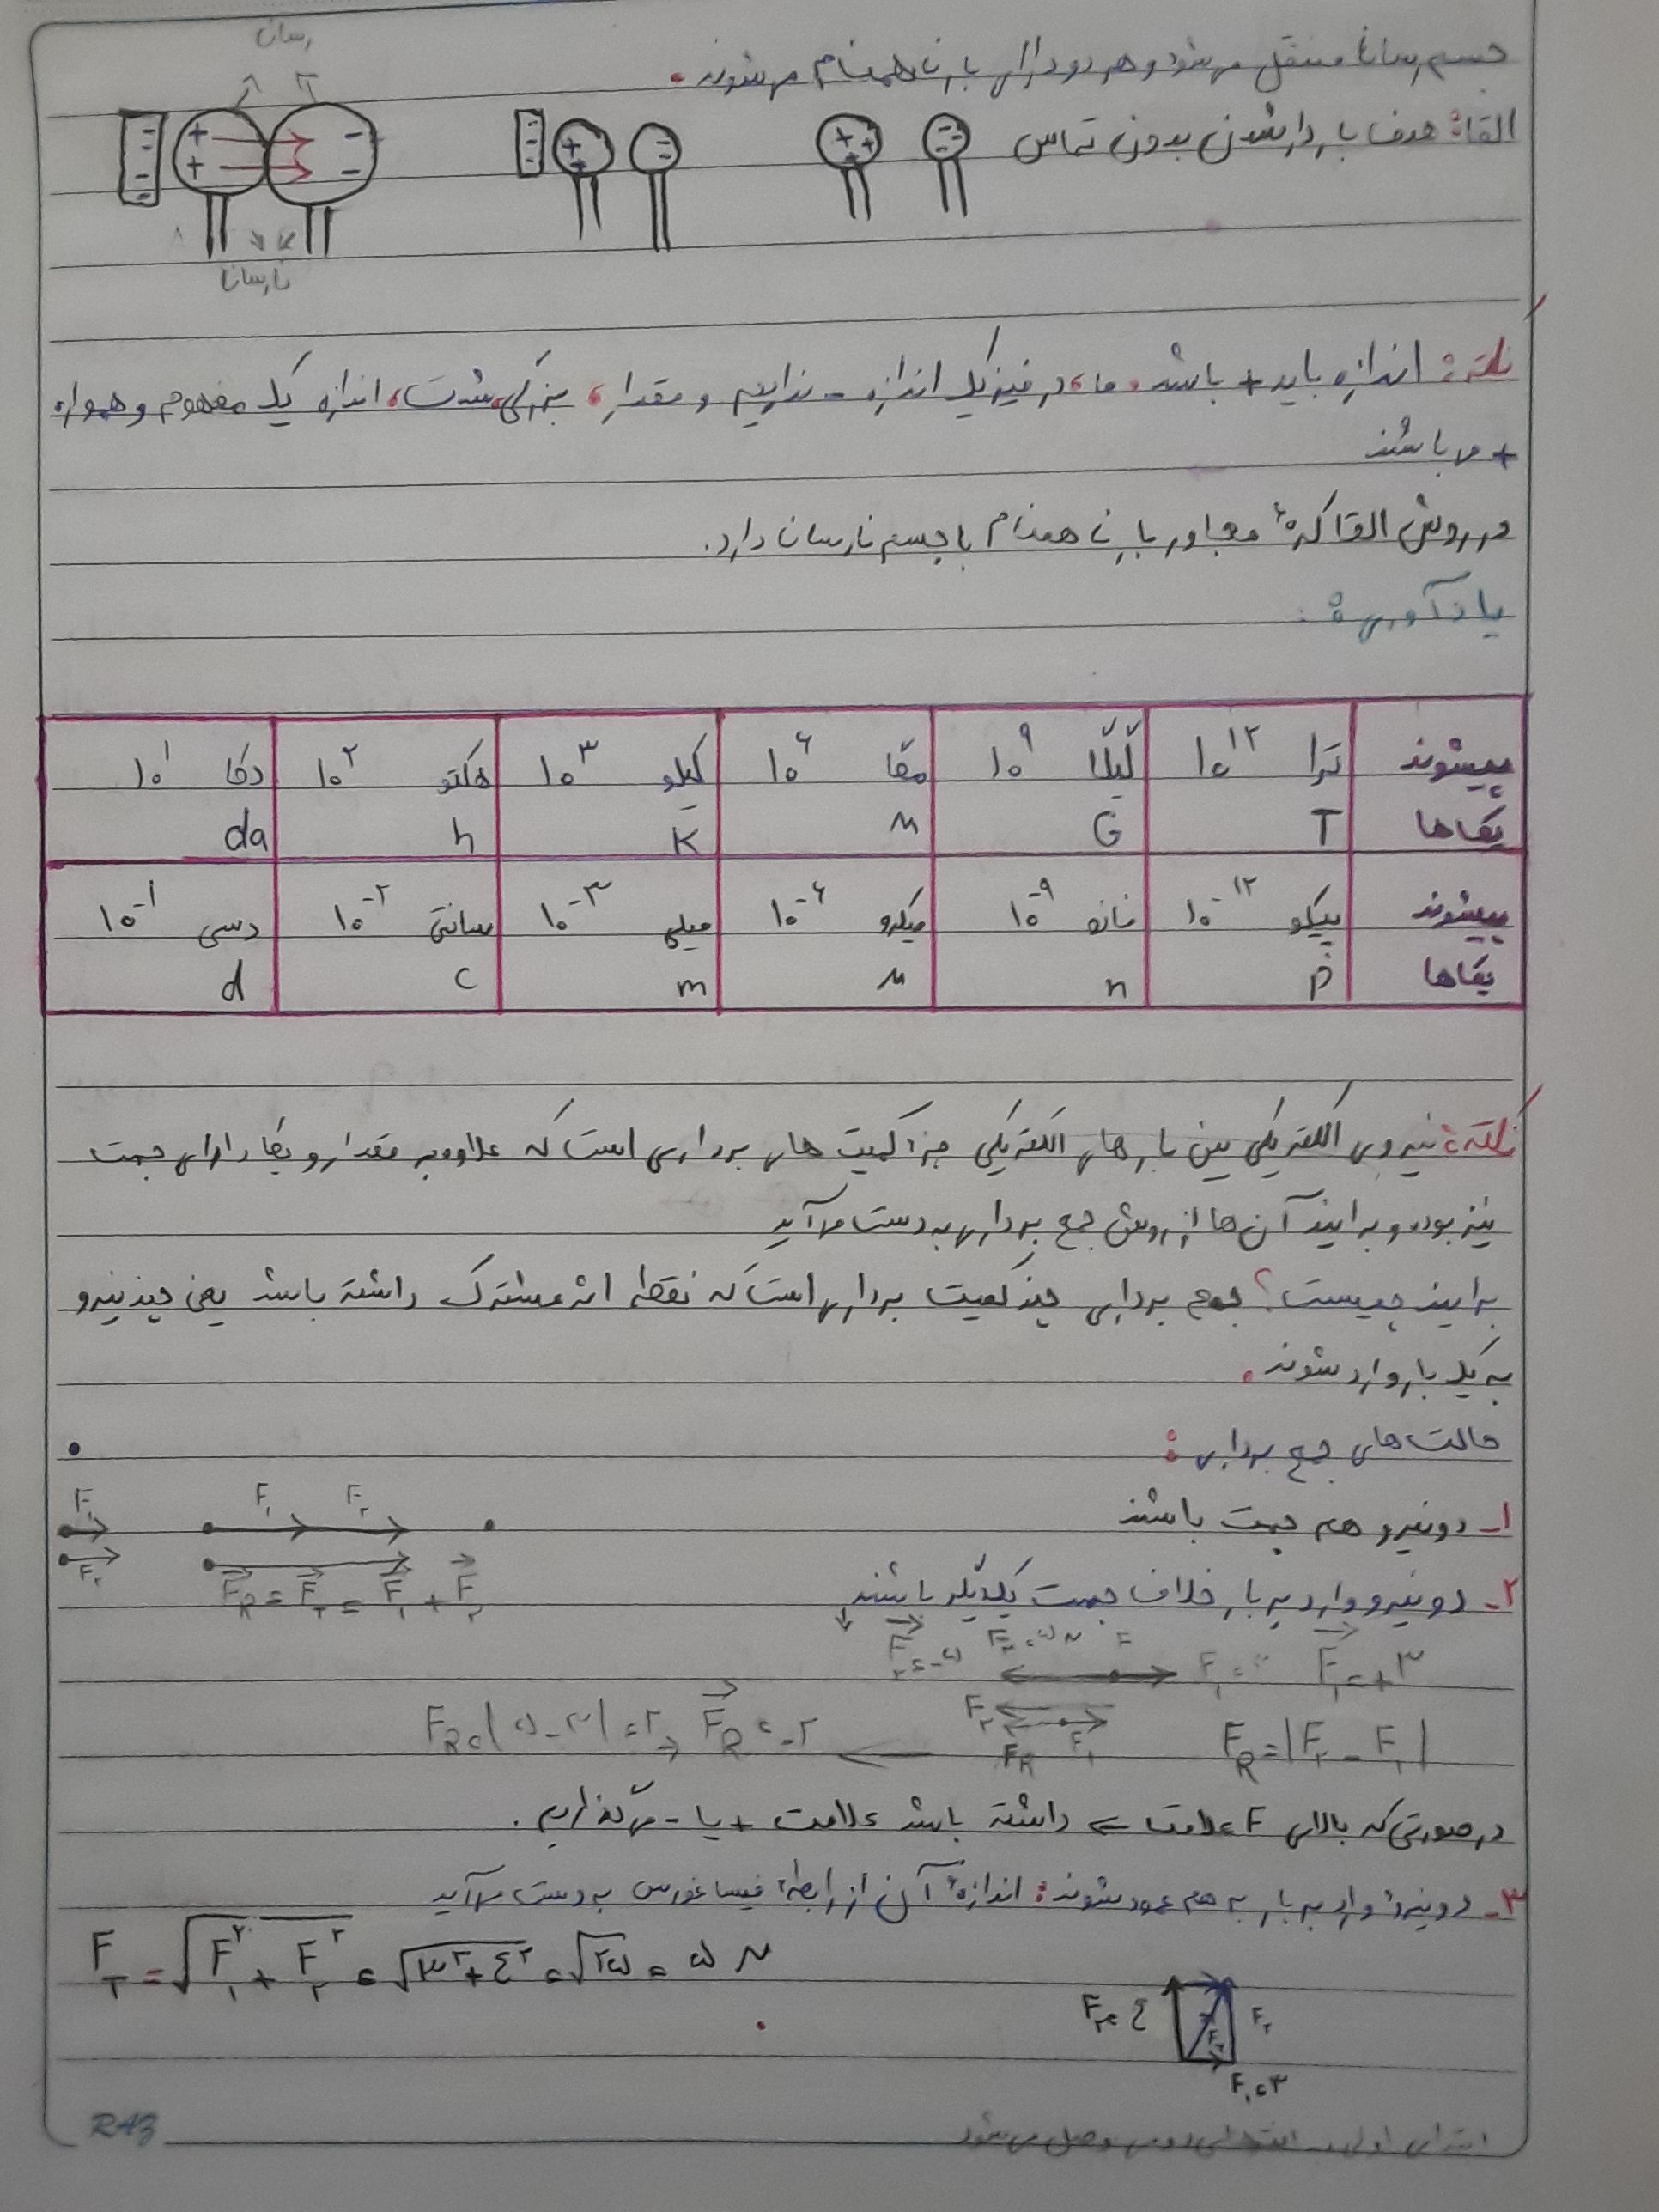 رسانا
جسم رسانا منتقل می‌شود و هر دو دارای بار ناهمنام می‌شوند.
القا: هدف باردار شدن بدون تماس
نارسانا
نکته: اندازه باید + باشد. ما در فیزیک اندازه - نداریم و مقدار، بزرگی، شدت، اندازه یک مفهوم و همواره
+ می‌باشند
در روش القا کرهٔ مجاور بار نا همنام با جسم نارسانا دارد.
یادآوری:
پیشوند یکاها | ترا ۱۰^۱۲ T | گیگا ۱۰^۹ G | مگا ۱۰^۶ M | کیلو ۱۰^۳ K | هکتو ۱۰^۲ h | دکا ۱۰^۱ da
پیشوند یکاها | پیکو ۱۰^-۱۲ p | نانو ۱۰^-۹ n | میکرو ۱۰^-۶ μ | میلی ۱۰^-۳ m | سانتی ۱۰^-۲ c | دسی ۱۰^-۱ d
نکته: نیروی الکتریکی بین بارهای الکتریکی جزء کمیت های برداری است که علاوه بر مقدار و یکا دارای جهت
نیز بوده و برایند آن ها از روش جمع برداری به دست می‌آید
برایند چیست؟ جمع برداری چند کمیت برداری است که نقطه اثر مشترک داشته باشد یعنی چند نیرو
به یک بار وارد شوند.
حالت های جمع برداری:
۱- دو نیرو هم جهت باشند
F₁ F₂ F₁ F₂
F_R = F_T = F₁ + F₂
۲- دو نیرو وارد بر بار خلاف جهت یکدیگر باشند
F₂ = -۵ F₂ = ۵N F₁ = ۳ F₁ = +۳
F_R = |F₂ - F₁| F₂ F₁ F_R F_R = |۵-۳| = ۲ → F_R = -۲
در صورتی که بالای F علامت → داشته باشد علامت + یا - می‌گذاریم.
۳- دو نیرؤ وارد به بار بر هم عمود شوند: اندازهٔ آن از رابطهٔ فیساغورس به دست می‌آید
F_T = √(F₁^۲ + F₂^۲) = √(۳^۲ + ٤^۲) = √۲۵ = ۵ N
F₂ = ٤ F₂ F_T
F₁ = ۳
ابتدای اولی به انتهای دومی وصل می‌شود
RAZ